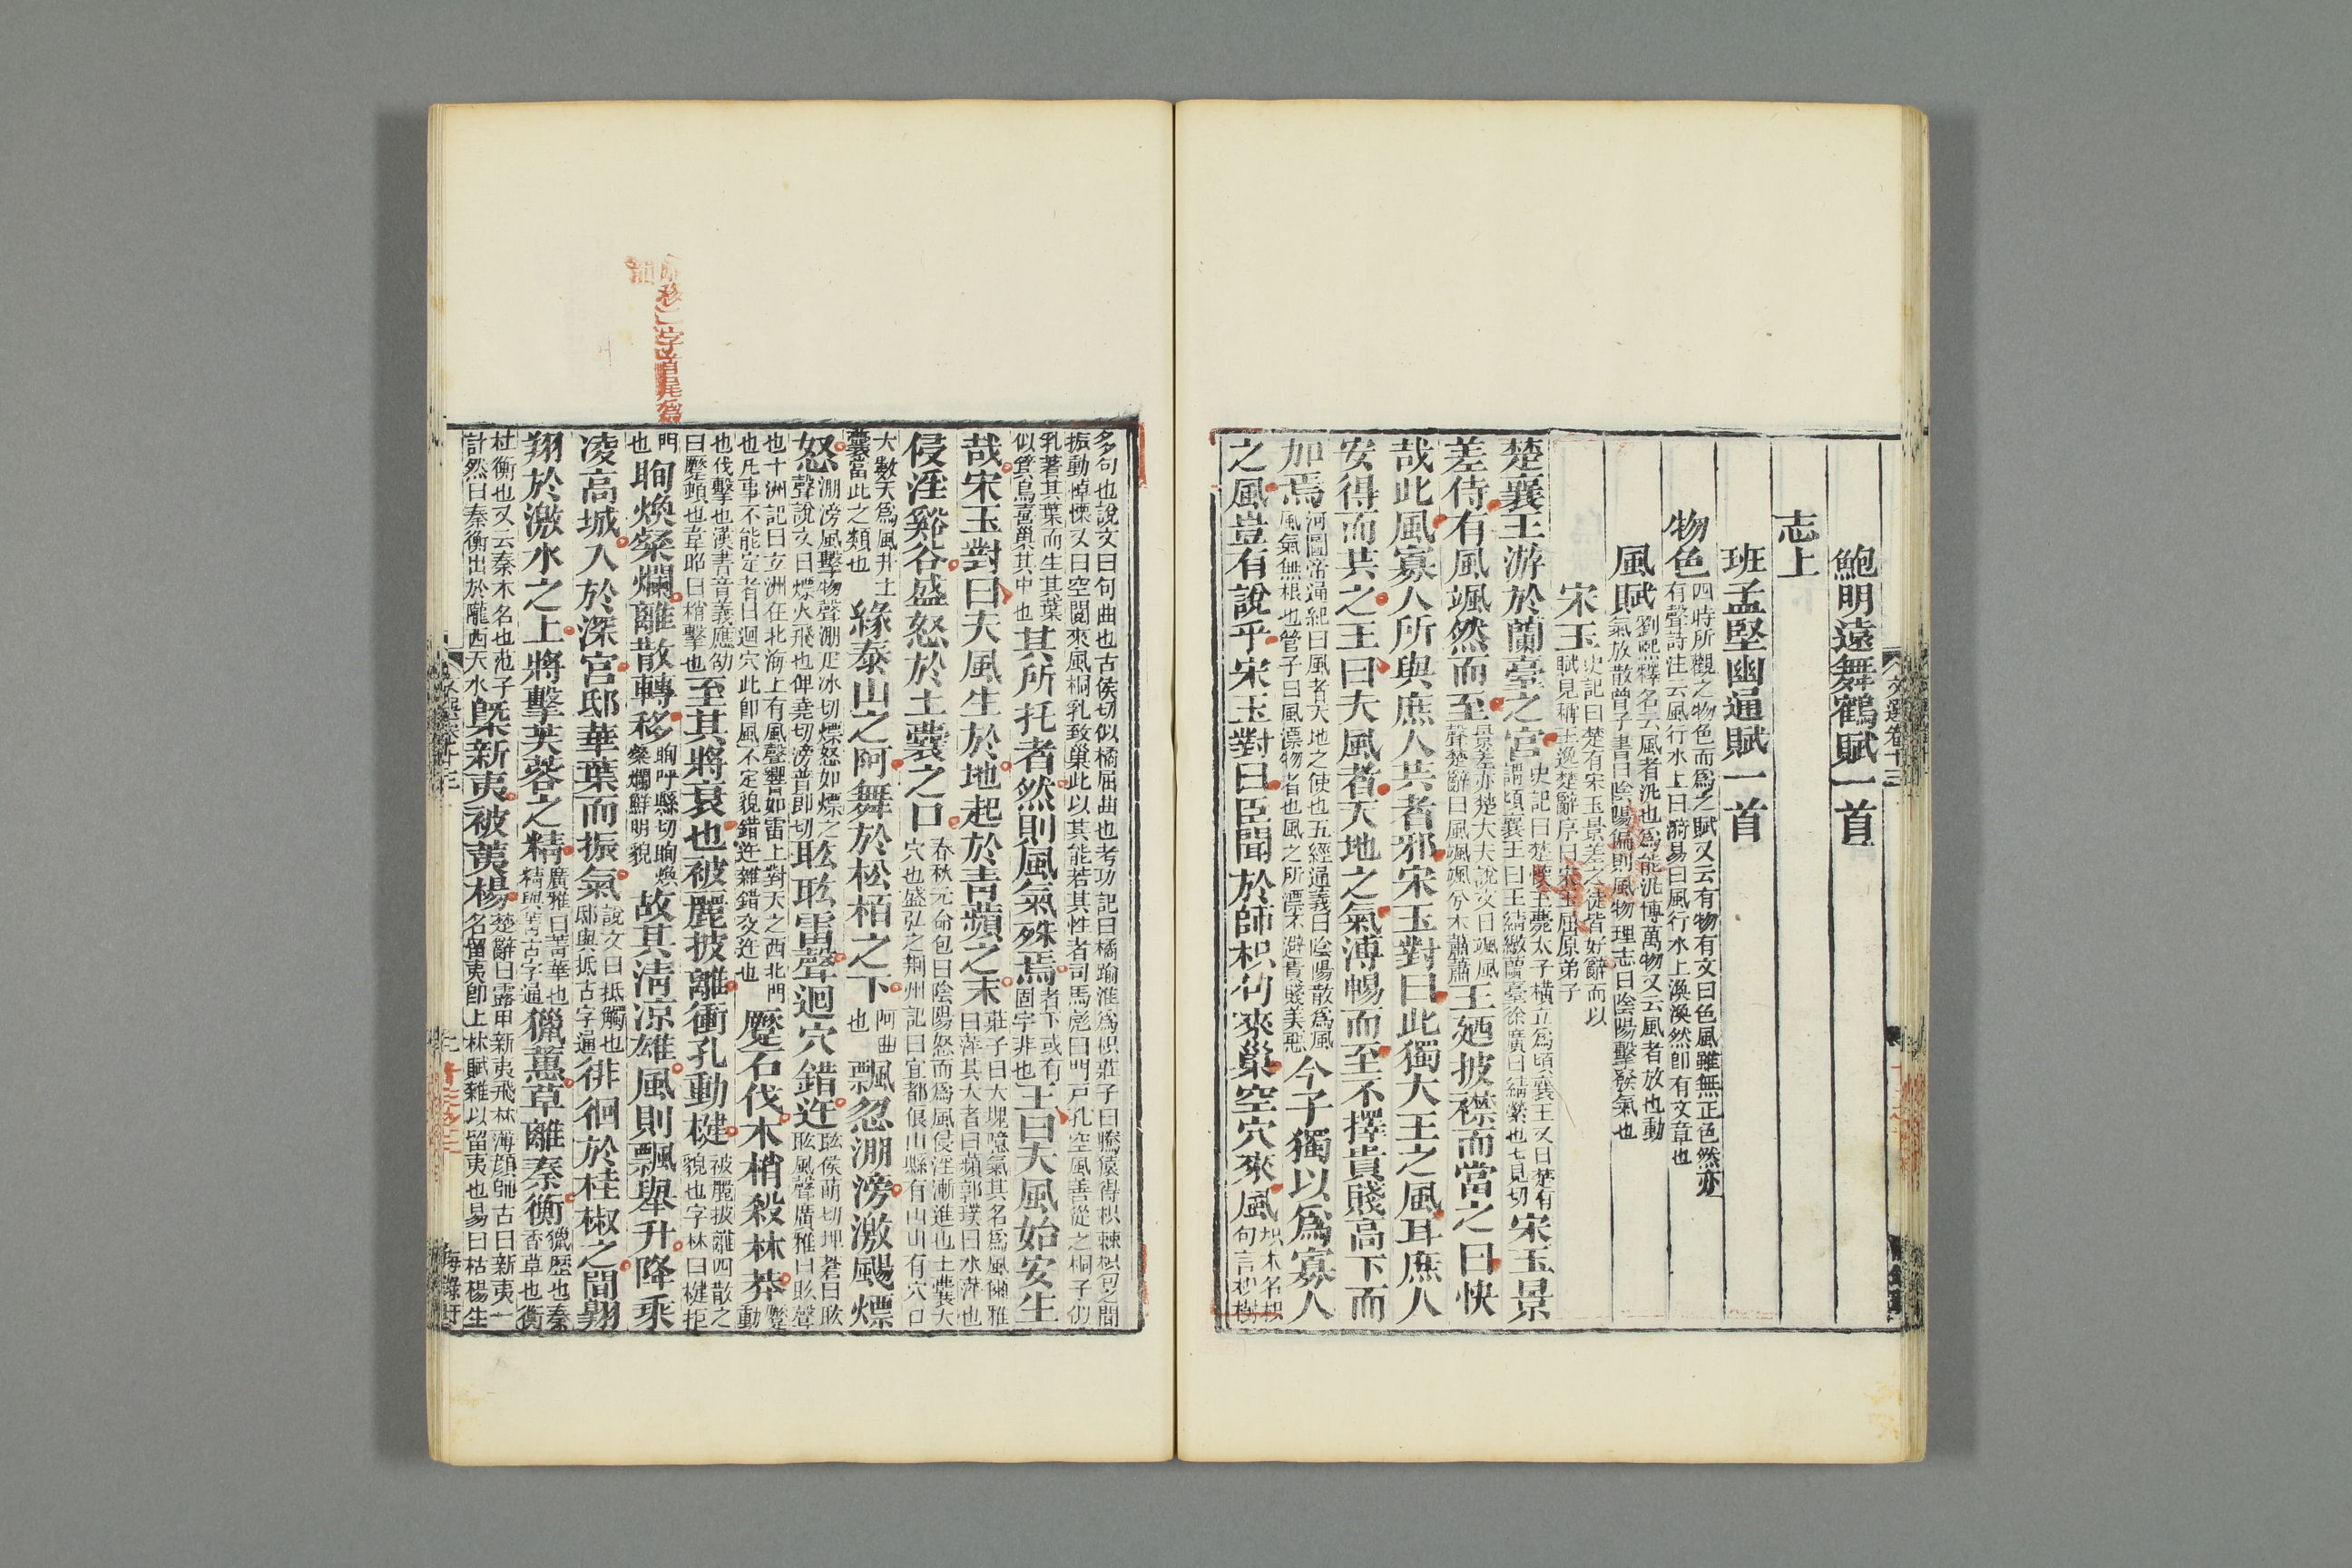 鮑明遠舞鶴賦一首
志上
班孟堅幽通賦一首
物色四時所觀之物色而爲之賦又云有物有文曰色風雖無正色然亦
有聲詩注云風行水上曰漪易曰風行水上渙渙然卽有文章也
風賦劉熙釋名云風者汎也爲能汎博萬物又云風者放也動
氣放散曾子書曰陰陽偏則風物理志曰陰陽擊發氣也
宋玉史記曰楚有宋玉景差之徒皆好辭而以
賦見稱王逸楚辭序曰宋玉屈原弟子
楚襄王游於蘭臺之宮史記曰楚懷王薨太子橫立爲頃襄王又曰楚有
謂頃襄王曰王綪繳蘭臺徐廣曰綪縈也七見切宋玉景
差侍有風颯然而至景差亦楚大夫說文曰颯風
聲楚辭曰風颯颯兮木蕭蕭王廼披襟而當之曰快
哉此風寡人所與庶人共者邪宋玉對曰此獨大王之風耳庶人
安得而共之王曰夫風者天地之氣溥暢而至不擇貴賤高下而
加焉河圖帝通紀曰風者天地之使也五經通義曰陰陽散爲風
風氣無根也管子曰風漂物者也風之所漂不避貴賤美惡今子獨以爲寡人
之風豈有說乎宋玉對曰臣聞於師枳句來巢空穴來風枳木名枳
句言枳樹
多句也說文曰句曲也古侯切似橘屈曲也考功記曰橘踰淮爲枳莊子曰騰猿得枳棘枳句之間
振動悼慄又曰空閬來風桐乳致巢此以其能若其性者司馬彪曰門戶孔空風善從之桐子似
乳著其葉而生其葉
似箕鳥喜巢其中也其所托者然則風氣殊焉者下或有
固字非也王曰夫風始安生
哉宋玉對曰夫風生於地起於青蘋之末莊子曰大塊噫氣其名爲風爾雅
曰萍其大者曰蘋郭璞曰水萍也
侵淫谿谷盛怒於土囊之口春秋元命包曰陰陽怒而爲風侵淫漸進也土囊大
穴也盛弘之荊州記曰宜都佷山縣有山山有穴口
大數尺爲風井土
囊當此之類也緣泰山之阿舞於松栢之下阿曲
也飄忽淜滂激颺熛
怒淜滂風擊物聲淜疋冰切熛怒如熛之
聲說文曰熛火飛也俾堯切滂普郎切耾耾雷聲迴穴錯迕耾侯萌切埤蒼曰耾
耾風聲廣雅曰耾聲
也十洲記曰玄洲在北海上有風聲響如雷上對天之西北門
也凡事不能定者曰迴穴此卽風不定貌錯迕雜錯交迕也蹷石伐木梢殺林莽蹷
動
也伐擊也漢書音義應劭
曰蹷頓也韋昭曰梢擊也至其將衰也被麗披離衝孔動楗被麗披離四散之
貌也字林曰楗拒
門
也眴煥粲爛離散轉移眴呼縣切眴煥
粲爛鮮明貌故其清涼雄風則飄舉升降乘
凌高城入於深宮邸華葉而振氣說文曰抵觸也
邸與抵古字通徘徊於桂椒之間翱
翔於激水之上將擊芙蓉之精廣雅曰菁華也
精與菁古字通獵蕙草離秦衡獵歷也秦
香草也衡
杜衡也又云秦木名也范子
計然曰秦衡出於隴西天水槩新夷被荑楊楚辭曰露甲新夷飛林薄顔師古曰新夷一
名留夷卽上林賦雜以留夷也易曰枯楊生
文選卷十三
海錄軒